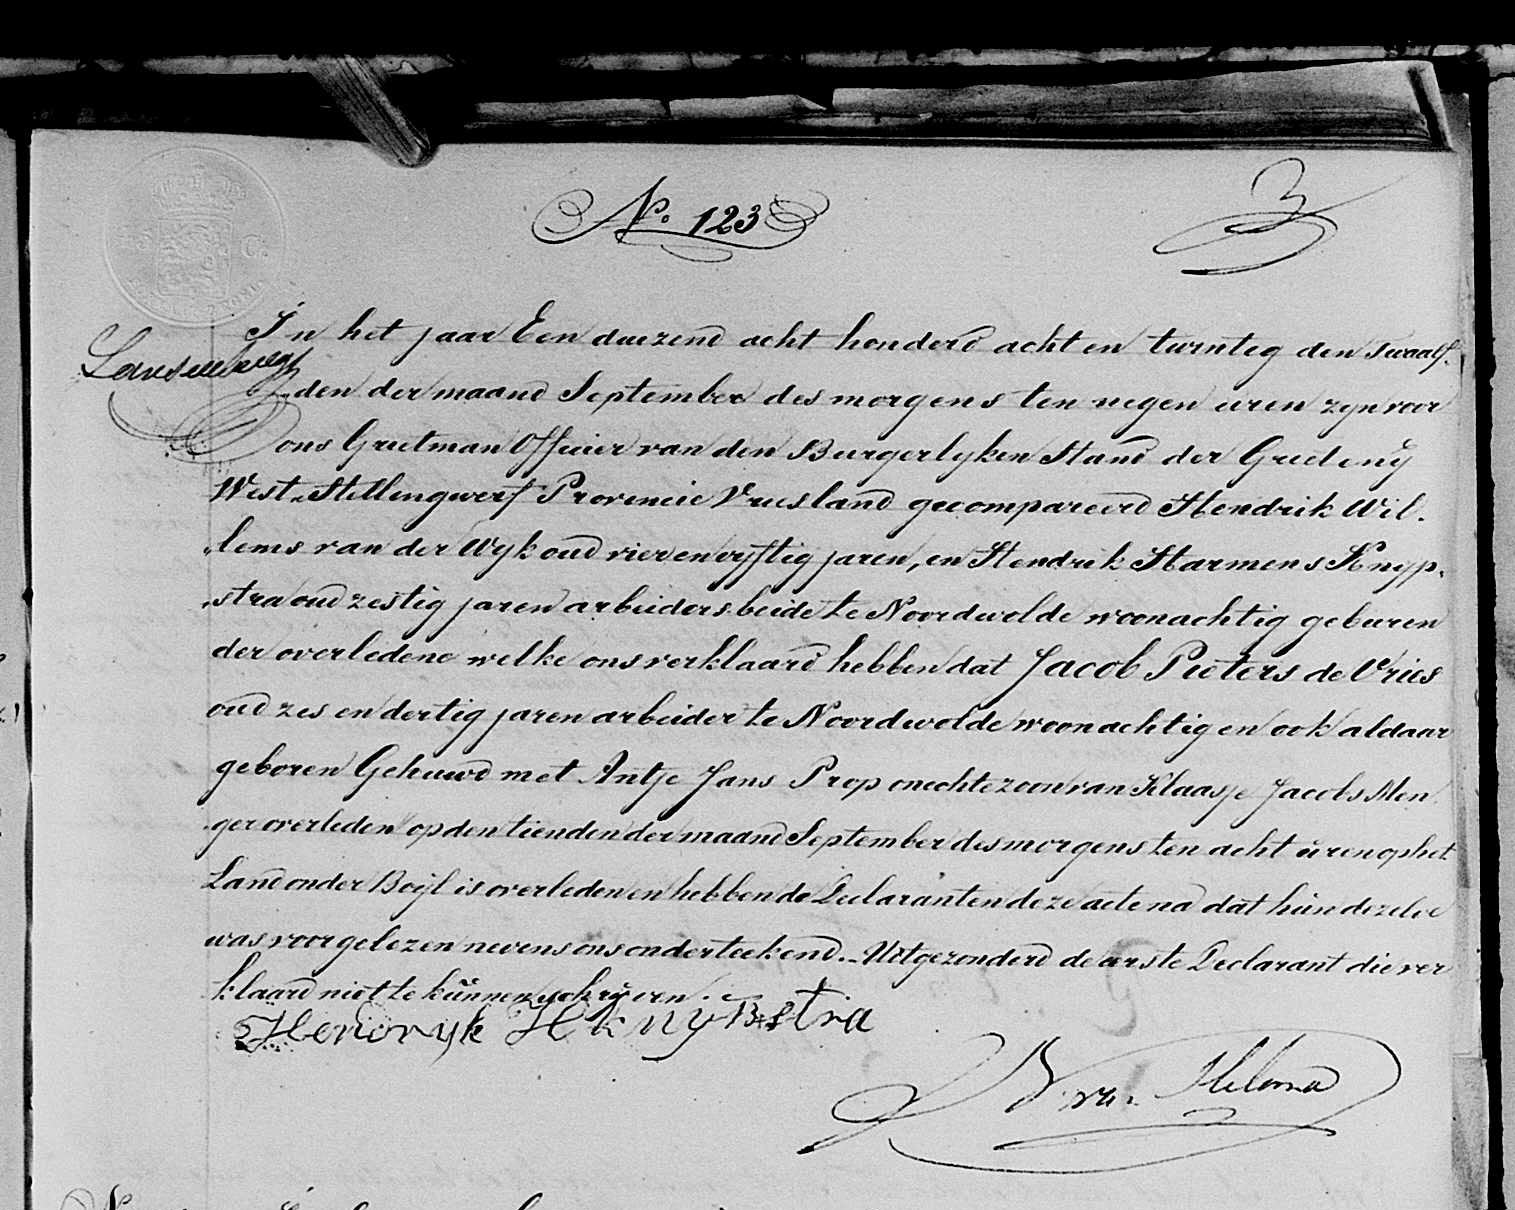 No. 123
3
In het jaar Een duizend acht honderd acht en twinteg den twaalf-
den der maand September des morgens ten negen uren zyn voor
ons Grietman Officier van den Burgerlyken Stand der Grieteny
West-Stellingwerf Provincie Vriesland gecompareerd Hendrik Wil-
lems van der Wyk oud vier en vyftig jaren, en Hendrik Harmens Knyp-
stra oud zestig jaren arbeiders beide te Noordwolde woonachtig geburen
der overledene welke ons verklaard hebben dat Jacob Pieters de Vries
oud zes en dertig jaren arbeider te Noordwolde woonachtig en ook aldaar
geboren Gehuwd met Antje Jans Prop onechte zoon van Klaasje Jacobs Men
ger overleden op den tienden der maand September des morgens ten acht uren op het
Land onder Boijl is overleden en hebben de Declaranten deze acte na dat hun dezelve
was voorgelezen nevens ons onderteekend. - Uitgezonderd de eerste Declarant die ver
klaard niet te kunnen schrijven.
Hendryk H knypstra